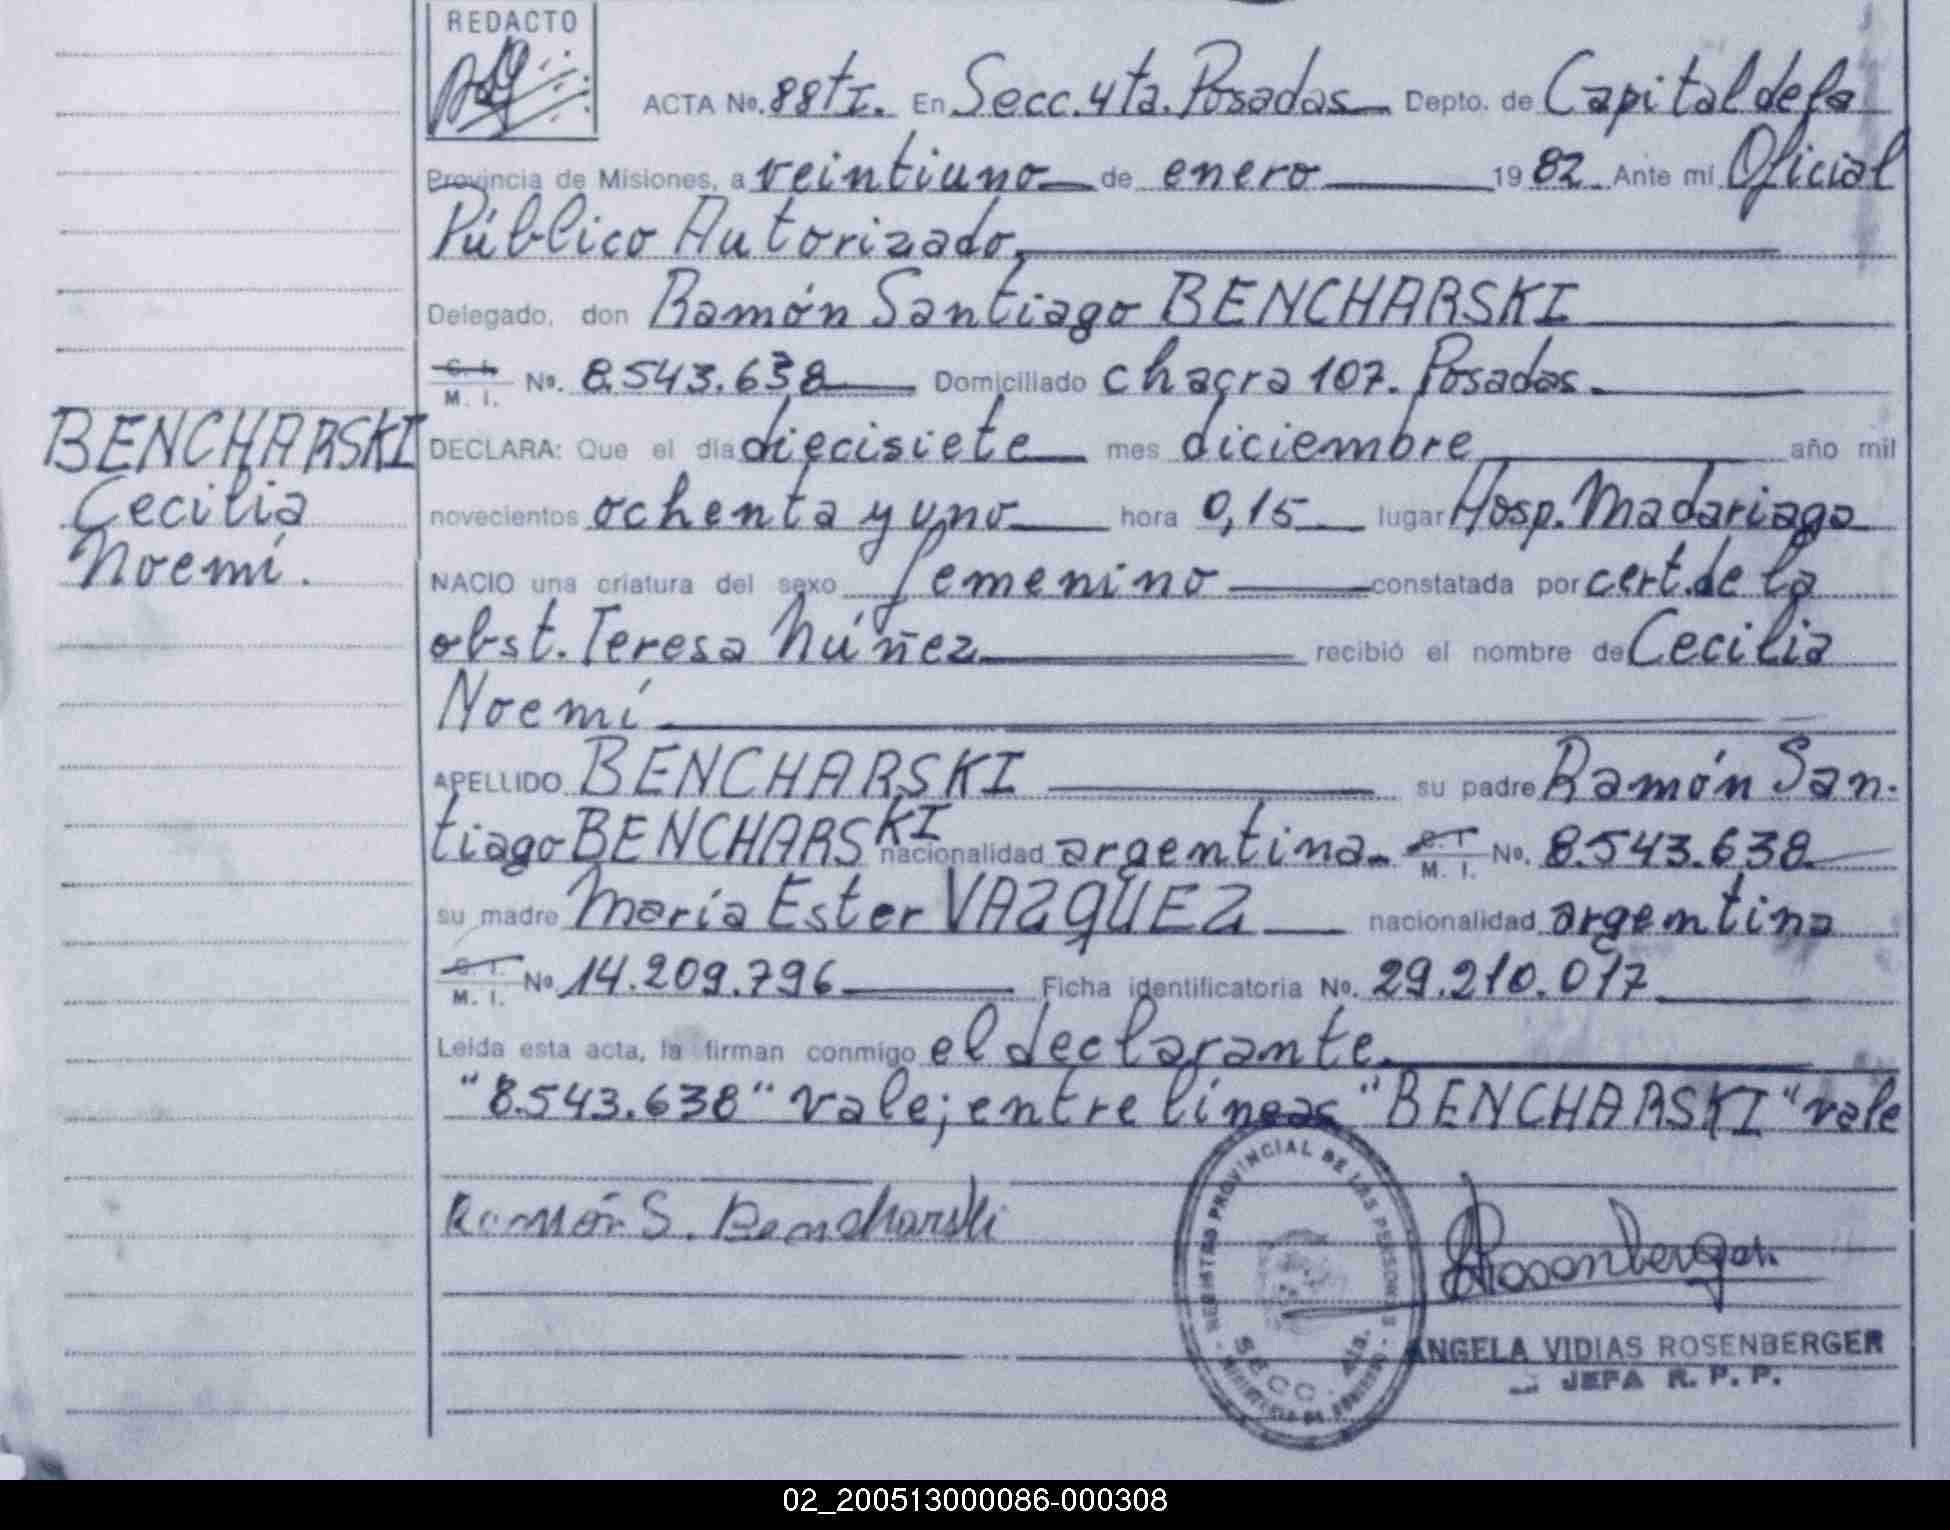 REDACTO
ACTA No. 88 tI. En Secc. 4ta. Posadas Depto. de Capital de la
Provincia de Misiones, a veintiuno de enero 1982 Ante mi Oficial
Público Autorizado,
Delegado, don Ramón Santiago BENCHARSKI
C. I.
M. I. No. 8.543.638 Domiciliado chacra 107. Posadas.
BENCHARSKI
Cecilia
Noemí.
DECLARA: Que el día diecisiete mes diciembre año mil
novecientos ochenta y uno hora 0,15 lugar Hosp. Madariaga
NACIO una criatura del sexo femenino constatada por cert. de la
obst. Teresa Núñez recibió el nombre de Cecilia
Noemí
APELLIDO BENCHARSKI su padre Ramón San-
tiago BENCHARSKI nacionalidad argentina C. I. M. I. No. 8.543.638
su madre María Ester VAZQUEZ nacionalidad argentina
C. I. M. I. No 14.209.796 Ficha identificatoria No. 29.210.017
Leída esta acta, la firman conmigo el declarante.
"8.543.638" vale; entre líneas "BENCHARSKI" vale
Ramón S. Bencharski
PROVINCIAL DE LAS PERSONAS
SECC. 4ta.
ANGELA VIDIAS ROSENBERGER
JEFA R. P. P.
02_200513000086-000308